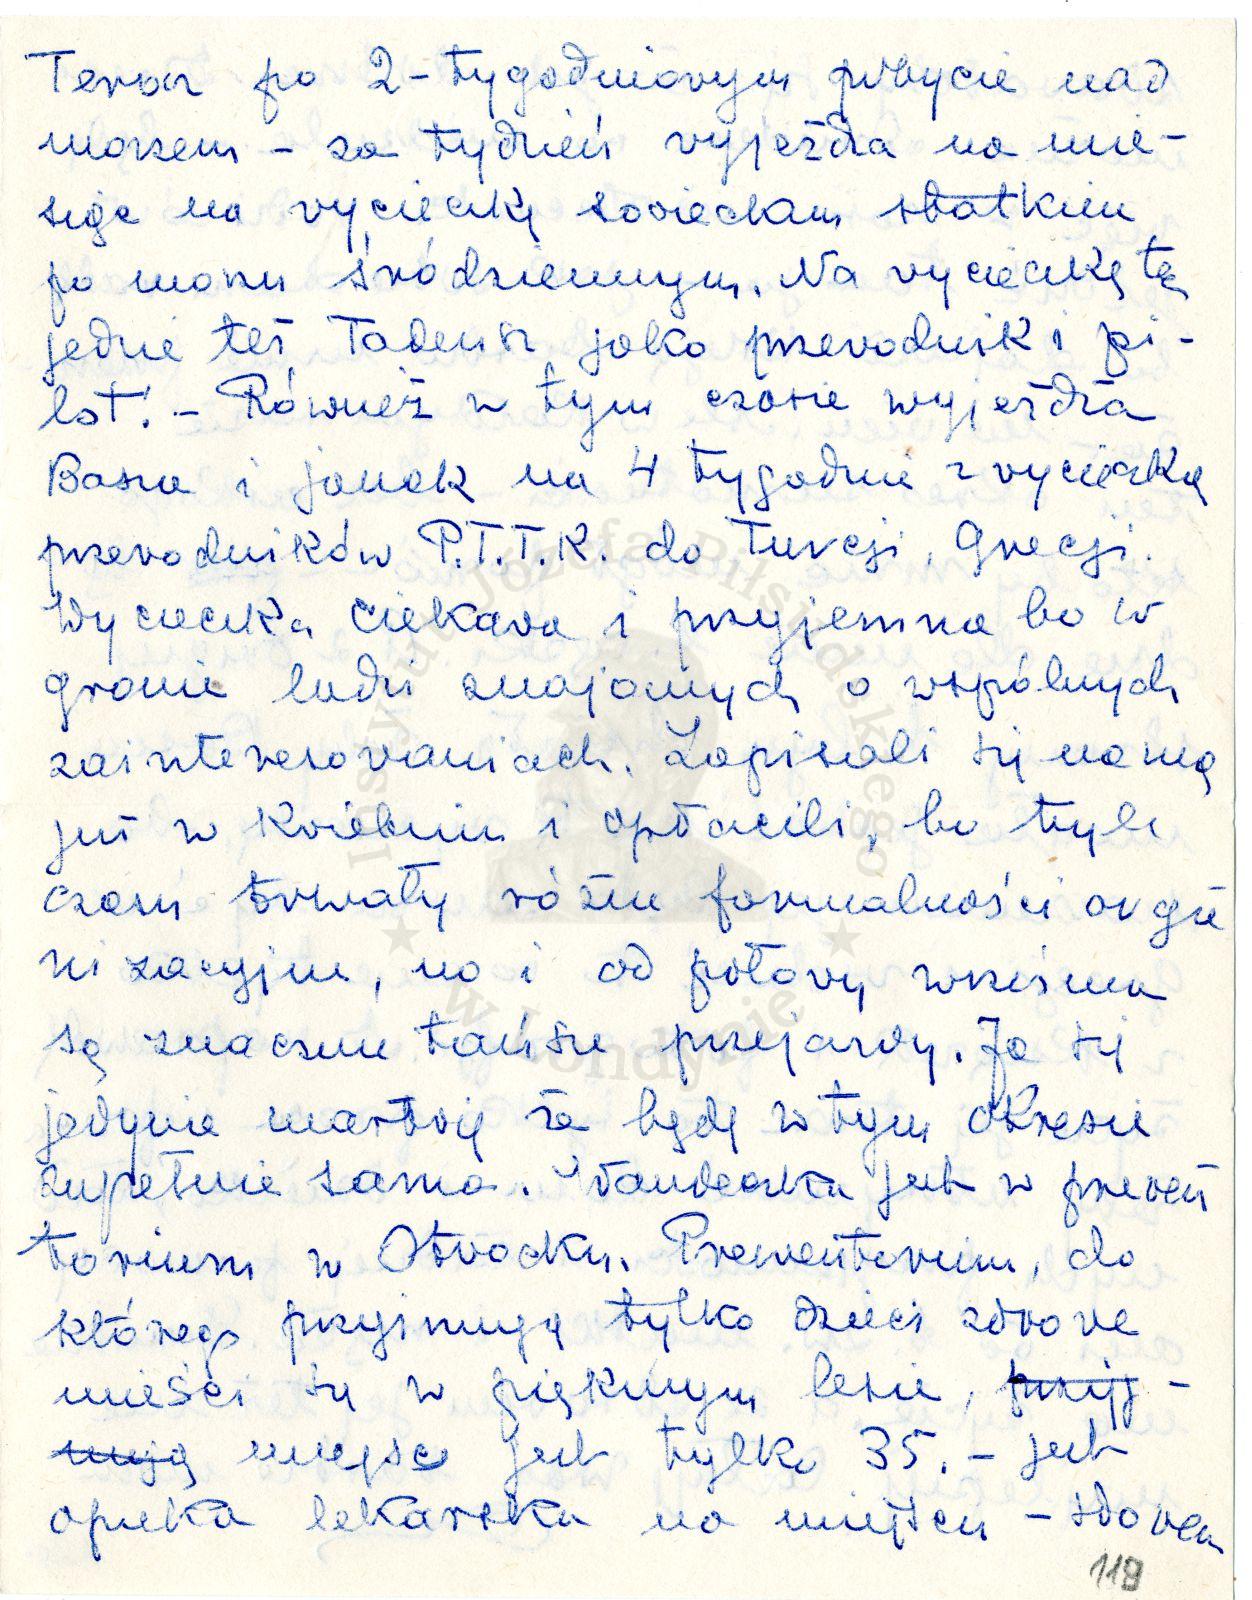 Teraz po 2-tygodniowym pobycie nad
morzem – za tydzień wyjeżdża na mie-
siąc na wycieczkę sowieckim statkiem
po morzu śródziemnym. Na wycieczkę tę
jedzie też Tadeusz jako przewodnik i pi-
lot. – Również w tym czasie wyjeżdża
Basia i Janek na 4 tygodnie z wycieczką
przewodników P.T.T.K. do Turcji, Grecji.
Wycieczka ciekawa i przyjemna bo w
gronie ludzi znajomych o wspólnych
zainteresowaniach. Zapisali się na nią
już w kwietniu i opłacili, bo tyle
czasu trwały różne formalności orga
nizacyjne, no i od połowy września
są znacznie tańsze przejazdy. Ja się
jedynie martwię że będę w tym okresie
zupełnie sama. Wandeczka jest w prewen
torium w Otwocku. Prewentorium, do
którego przyjmują tylko dzieci zdrowe
mieści się w pięknym lesie, przyj-
mują miejsc jest tylko 35. – jest
opieka lekarska na miejscu – słowem
118
Instytut Józefa Piłsudskiego
★ w Londynie ★